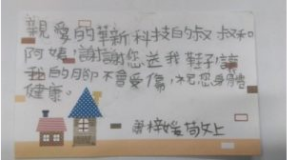 親愛的革新科技的叔叔和
阿姨,謝謝您送我鞋子,讓
我的腳不會受傷,祝您身體
健康。
梓媛敬上